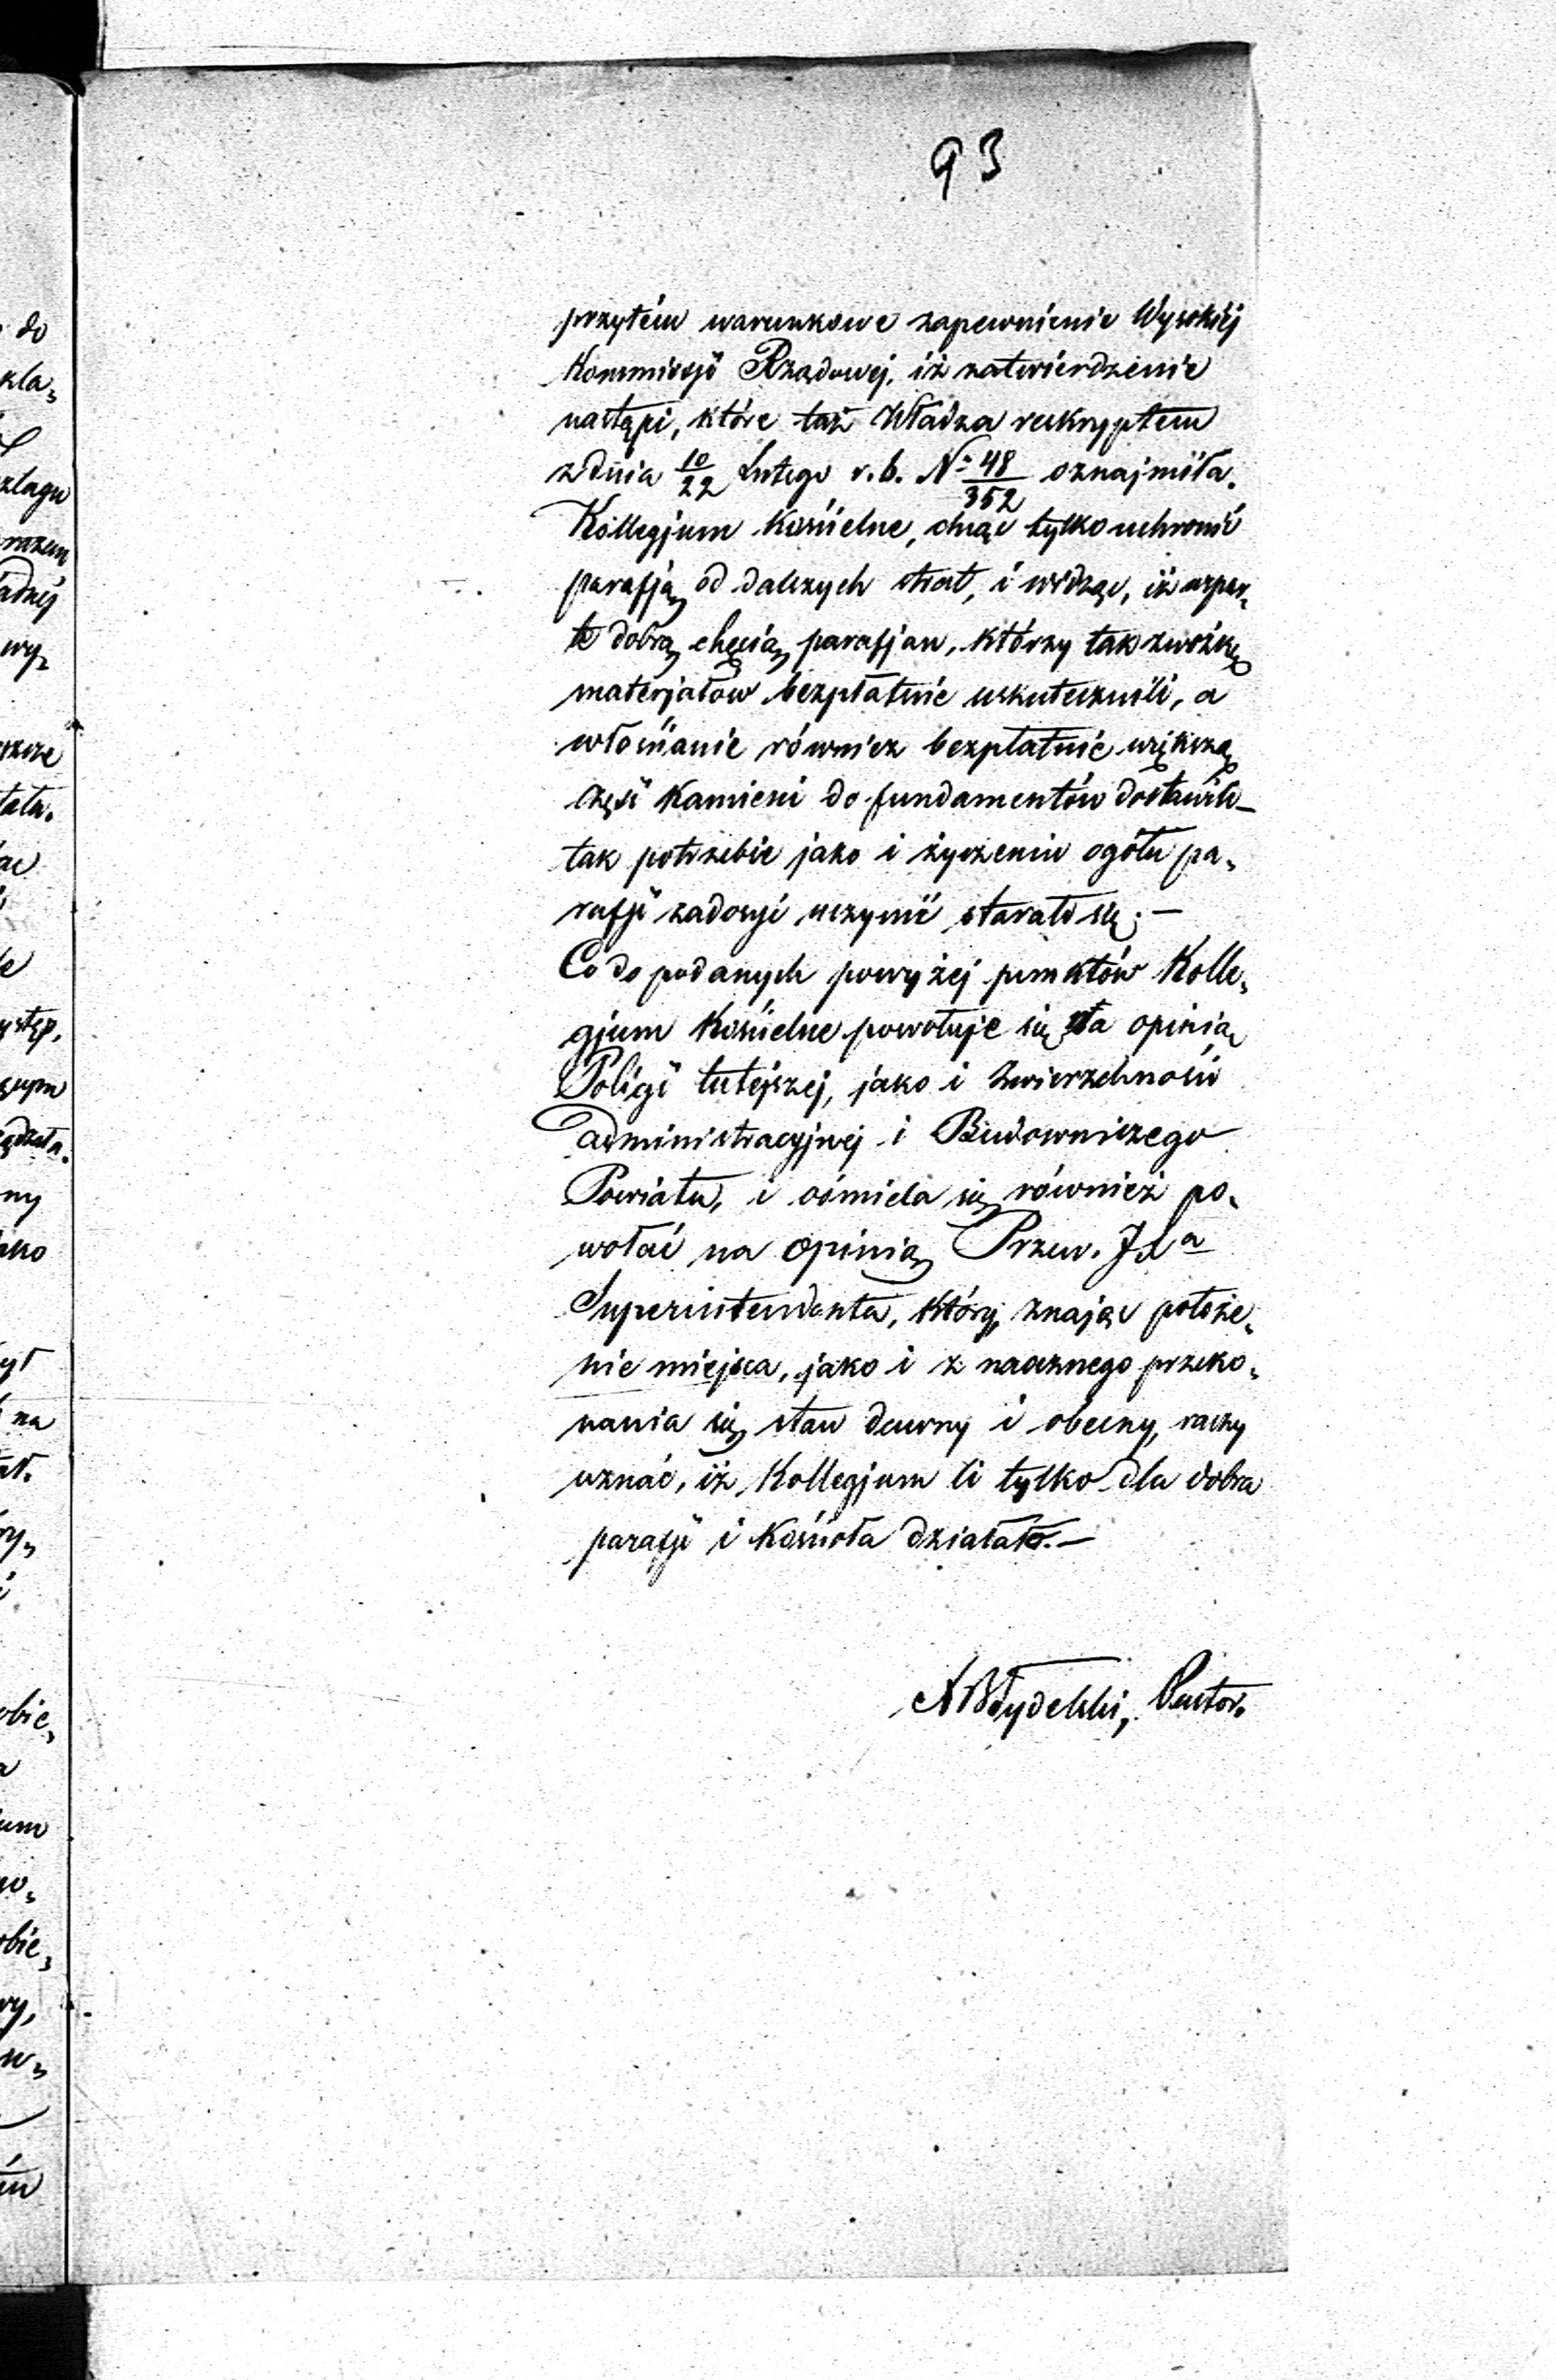 93
przytém warunkowe zapewnienie Wysokiéj
Kommissji Rządowéj, iż zatwierdzenie
nastąpi, które taż Władza reskryptem
z dnia 10/22 Lutego r. b. No 48/352 oznajmiła.
Kollegjum Kościelne, chcąc tylko uchronić
parafją od dalszych strat, i widząc, iż wspar-
te dobrą chęcią parafjan, którzy tak zwózkę
materjałów bezpłatnie uskutecznili, a
włościanie również bezpłatnie większą
część kamieni do fundamentów dostawili—
tak potrzebie jako i życzeniu ogółu pa-
rafji zadosyć uczynić starało się.—
Co do podanych powyżéj punktów Kolle-
gjum Kościelne powołuje się na opinią
Policji tutejszej, jako i Zwierzchności
administracyjnej i Budowniczego
Powiatu, i ośmiela się również po-
wołać na opinią Przew. JXa
Superintendenta, który, znając położe-
nie miejsca, jako i z naocznego przeko-
nania się stan dawny i obecny, raczy
uznać, iż Kollegjum li tylko dla dobra
parafji i Kościoła działało.—
Pastor.
do
kla-
razem
wy-
ny
na